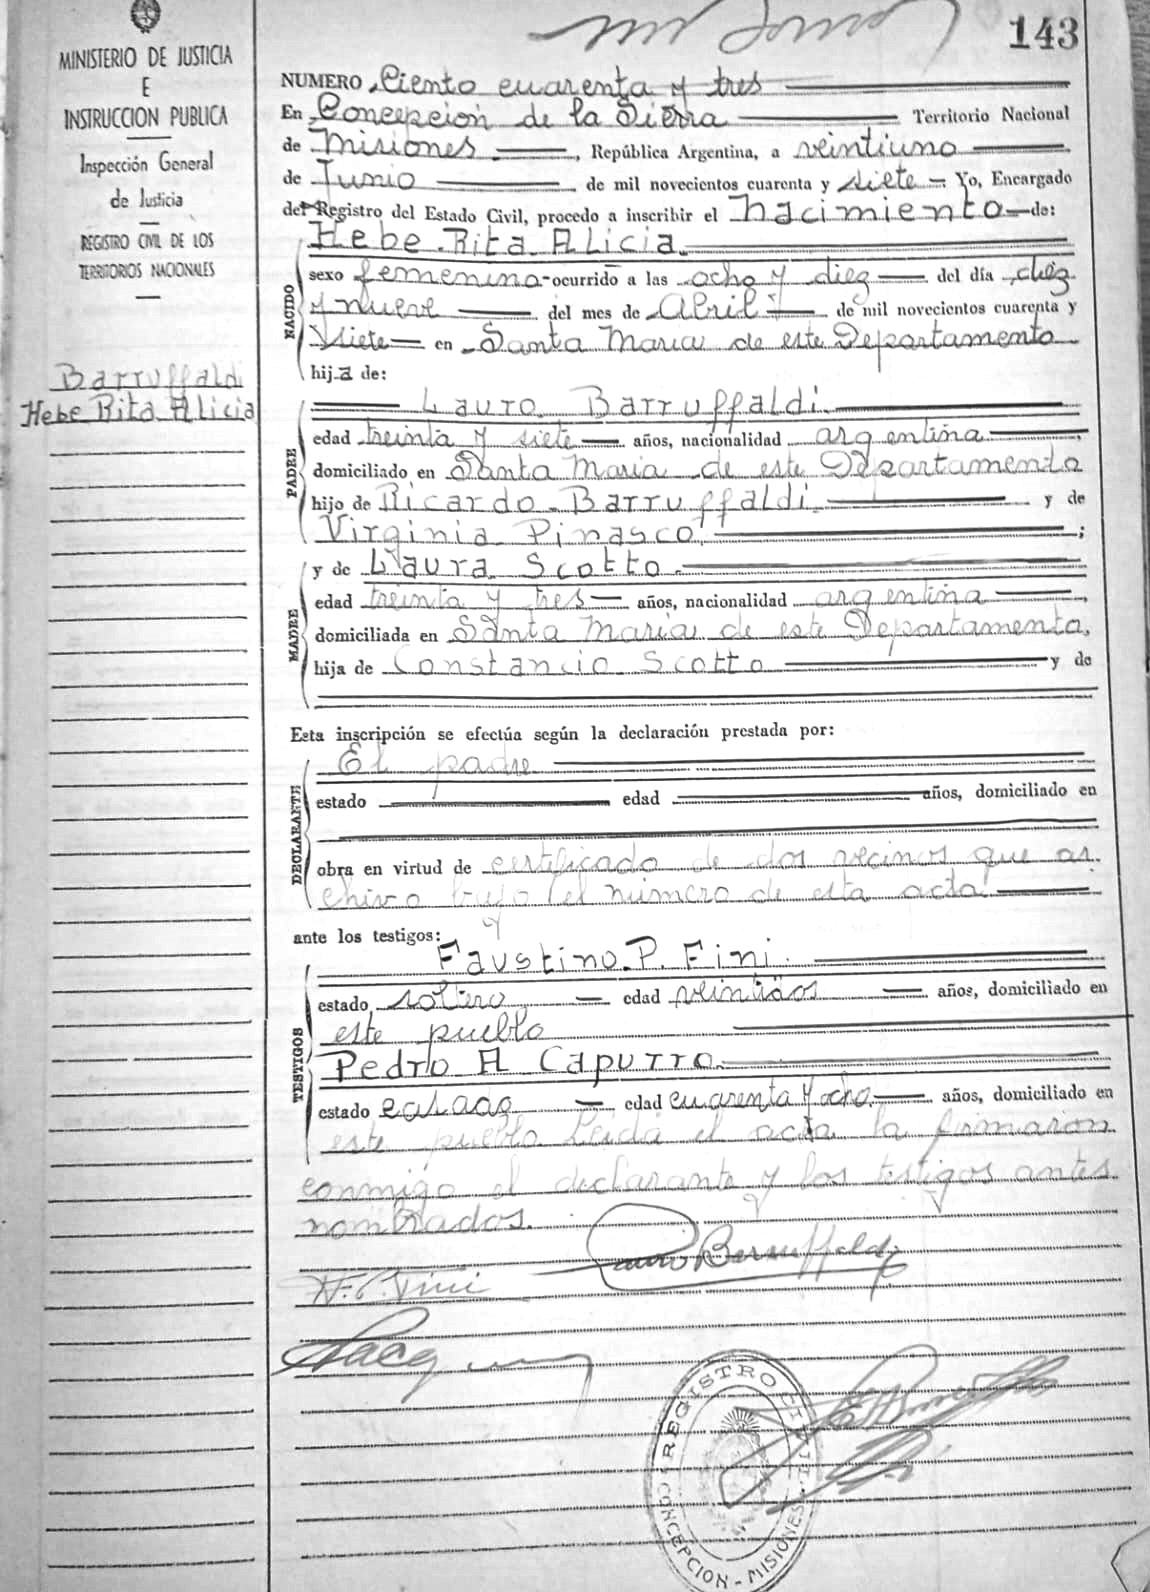 143
MINISTERIO DE JUSTICIA
E
INSTRUCCION PUBLICA
Inspección General
de Justicia
REGISTRO CIVIL DE LOS
TERRITORIOS NACIONALES
Barruffaldi
Hebe Rita Alicia
NUMERO Ciento cuarenta y tres
En Concepción de la Sierra Territorio Nacional
de Misiones, República Argentina, a veintiuno
de Junio de mil novecientos cuarenta y siete Yo, Encargado
del Registro del Estado Civil, procedo a inscribir el nacimiento de:
Hebe Rita Alicia
NACIDO
sexo femenino ocurrido a las ocho y diez del día diez
y nueve del mes de Abril de mil novecientos cuarenta y
siete en Santa Maria de este Departamento
hija de:
Lauro Barruffaldi
PADRE
edad treinta y siete años, nacionalidad argentina
domiciliado en Santa Maria de este Departamento
hijo de Ricardo Barruffaldi y de
Virginia Pinasco;
y de Laura Scotto
MADRE
edad treinta y tres años, nacionalidad argentina,
domiciliada en Santa Maria de este Departamento,
hija de Constancio Scotto y de
Esta inscripción se efectúa según la declaración prestada por:
El padre
DECLARANTE
estado edad años, domiciliado en
obra en virtud de certificado de dos vecinos que ar
chivo bajo el número de esta acta
ante los testigos:
Faustino P. Fini
TESTIGOS
estado soltero edad veintidos años, domiciliado en
este pueblo
Pedro A Capurro
estado casado edad cuarenta y ocho años, domiciliado en
este pueblo Leida el acta la firmaron
conmigo el declarante y los testigos antes
nombrados.
Lauro Barruffaldi
F. P. Fini
REGISTRO CIVIL
CONCEPCION - MISIONES